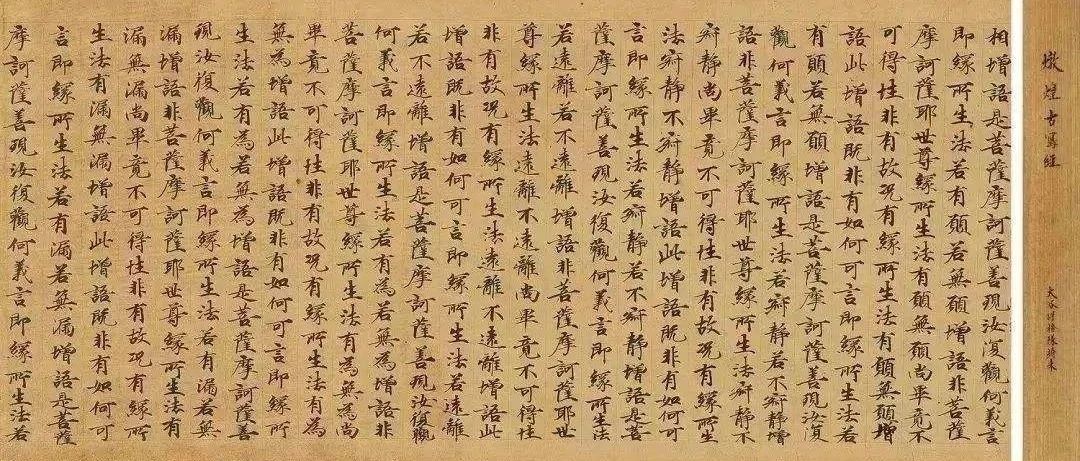 墩煌古寫經
相增語是菩薩摩訶薩善現汝復觀何義言
即緣所生法若有願若無願增語非菩薩
摩訶薩耶世尊緣所生法有願無願尚畢竟不
可得性非有故况有緣所生法有願無願增
語此增語既非有如何可言即緣所生法若
有願若無願增語是菩薩摩訶薩善現汝復
觀何義言即緣所生法若寂靜若不寂靜增
語非菩薩摩訶薩耶世尊緣所生法寂靜不
寂靜尚畢竟不可得性非有故况有緣所生
法寂靜不寂靜增語此增語既非有如何可
言即緣所生法若寂靜若不寂靜增語是菩
薩摩訶薩善現汝復觀何義言即緣所生法
若遠離若不遠離增語非菩薩摩訶薩耶世
尊緣所生法遠離不遠離尚畢竟不可得性
非有故况有緣所生法遠離不遠離增語此
增語既非有如何可言即緣所生法若遠離
若不遠離增語是菩薩摩訶薩善現汝復觀
何義言即緣所生法若有為若無為增語非
菩薩摩訶薩耶世尊緣所生法有為無為尚
畢竟不可得性非有故况有緣所生法有為
無為增語此增語既非有如何可言即緣所
生法若有為若無為增語是菩薩摩訶薩善
現汝復觀何義言即緣所生法若有漏若無
漏增語非菩薩摩訶薩耶世尊緣所生法有
漏無漏尚畢竟不可得性非有故况有緣所
生法有漏無漏增語此增語既非有如何可
言即緣所生法若有漏若無漏增語是菩薩
摩訶薩善現汝復觀何義言即緣所生法若